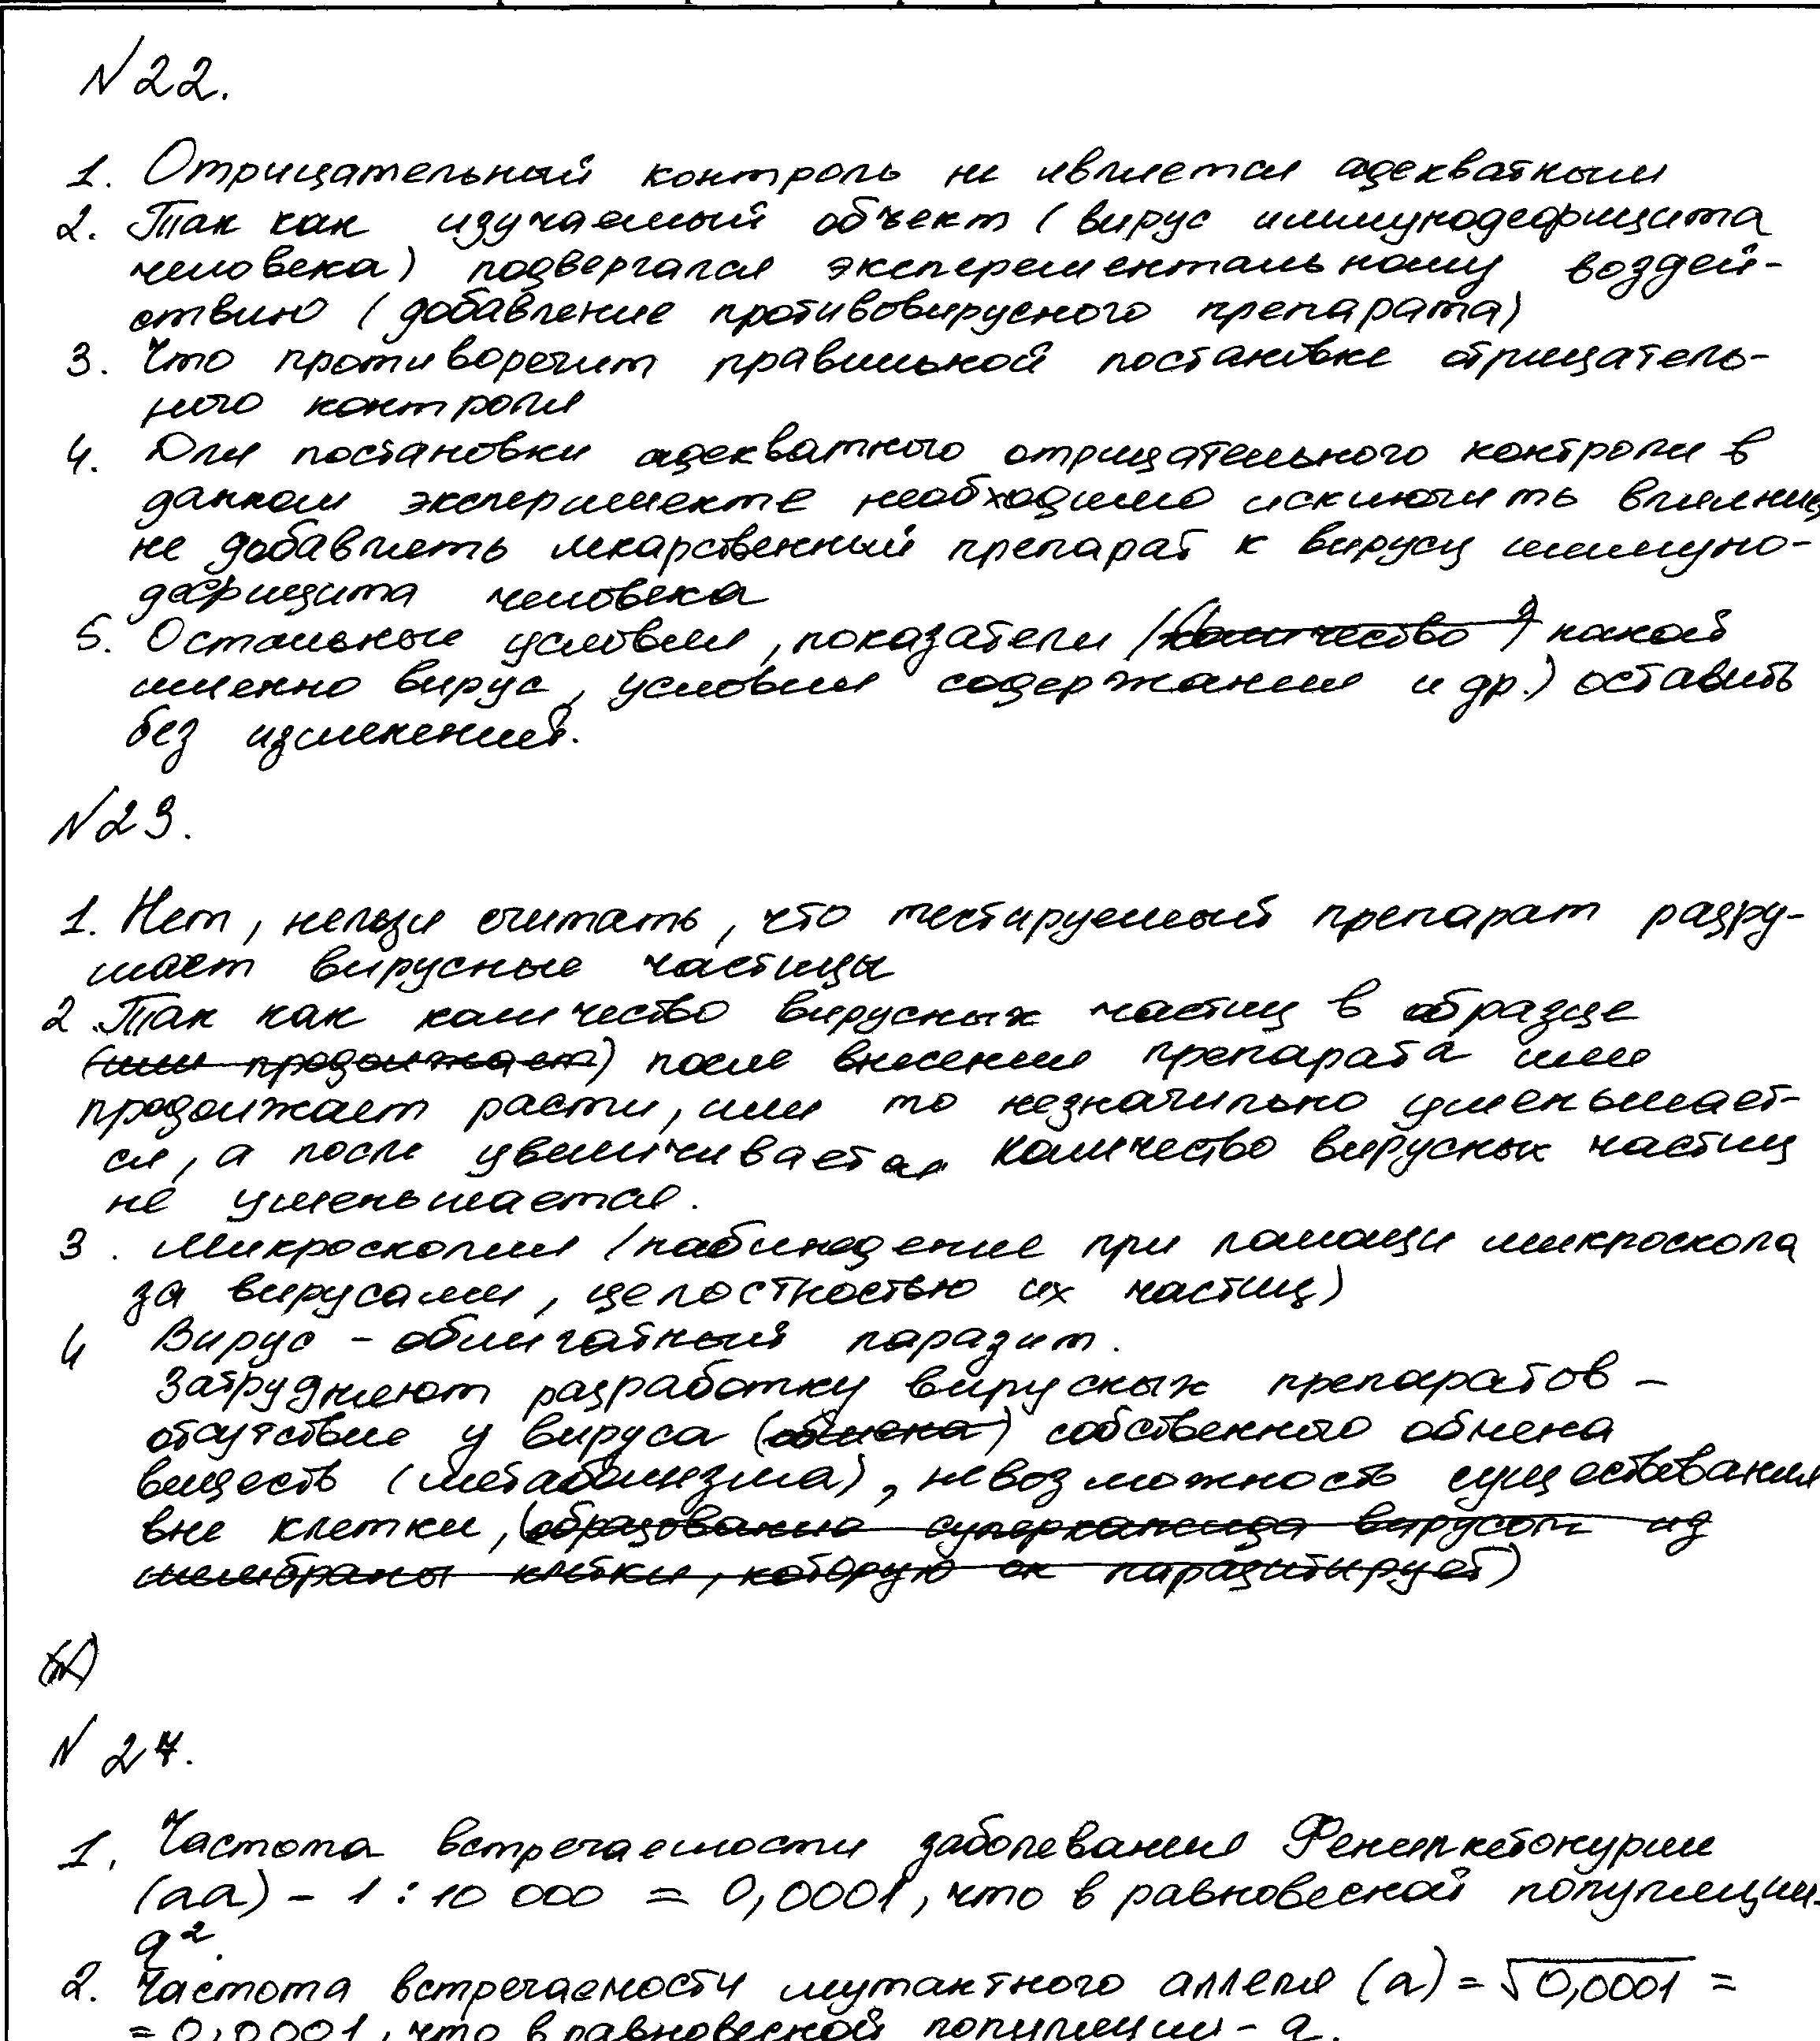 N 22.
1. Отрицательный контроль не является адекватным
2. Так как изучаемый объект (вирус иммунодефицита
человека) подвергался эксперементальному воздей-
ствию (добавление противовирусного препарата)
3. Что противоречит правильной постановке отрицатель-
ного контроля
4. Для постановки адекватного отрицательного контроля в
данном эксперименте необходимо исключить влияние
не добавлять лекарственный препарат к вирусу иммуно-
дефицита человека
5. Остальные условия, показатели (количество) какой
именно вирус, условия содержания и др.) оставить
без изменений.
N 23.
1. Нет, нельзя считать, что тестируемый препарат разру-
шает вирусные частицы
2. Так как количество вирусных частиц в образце
(или продолжает) после внесения препарата или
продолжает расти, или то незначильно уменьшает-
ся, а после увеличивается. Количество вирусных частиц
не уменьшается.
3. Микроскопия (наблюдение при помощи микроскопа
за вирусами, целостностью их частиц)
4 Вирус - облигатный паразит.
Затрудняют разработку вирусных препаратов -
отсутствие у вируса (обмена) собственного обмена
веществ (метаболизма), невозможность существования
вне клетки, (образование суперкапсида вирусом из
мембраны клетки, которую он паразитирует)
N 27.
1. Частота встречаемости заболевания Фенилкетонурии
(aa) - 1 : 10 000 = 0,0001, что в равновесной популяции-
q².
2. Частота встречаемости мутантного аллеля (a) = √0,0001 =
= 0,0001, что в равновесной популяции - q.